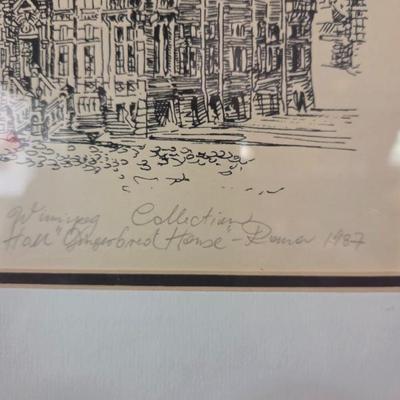 Winnipeg Collection
Hall "Gingerbred House" - 1987